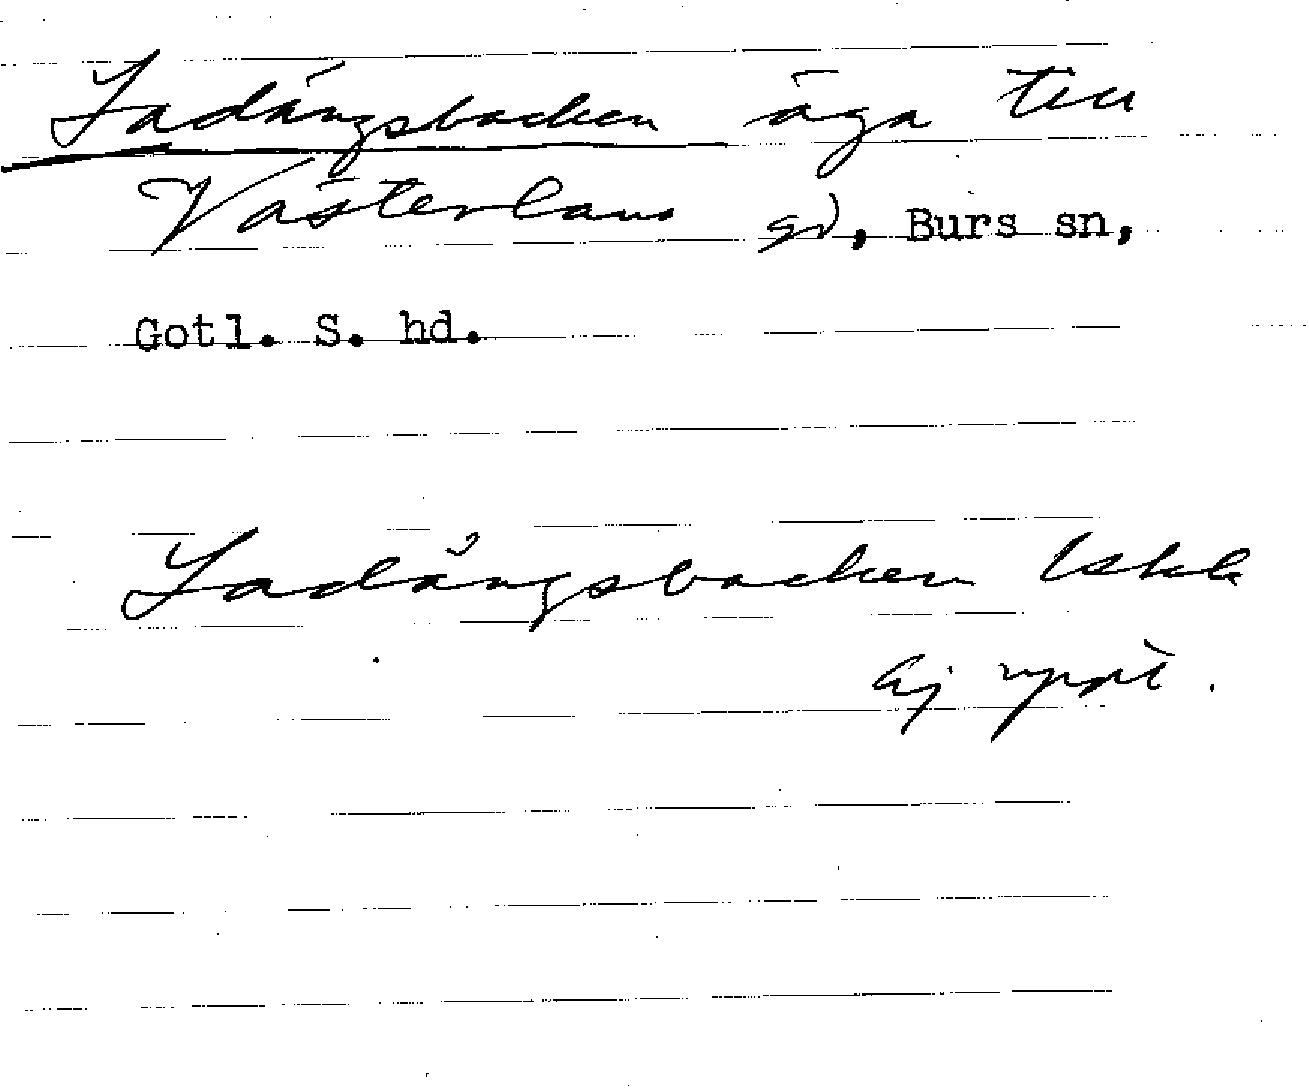 Ladängsbacken äga till
Västerlaus gd, Burs sn,
Gotl. S. hd.
Ladängsbacken Iskk
Ej uppt.